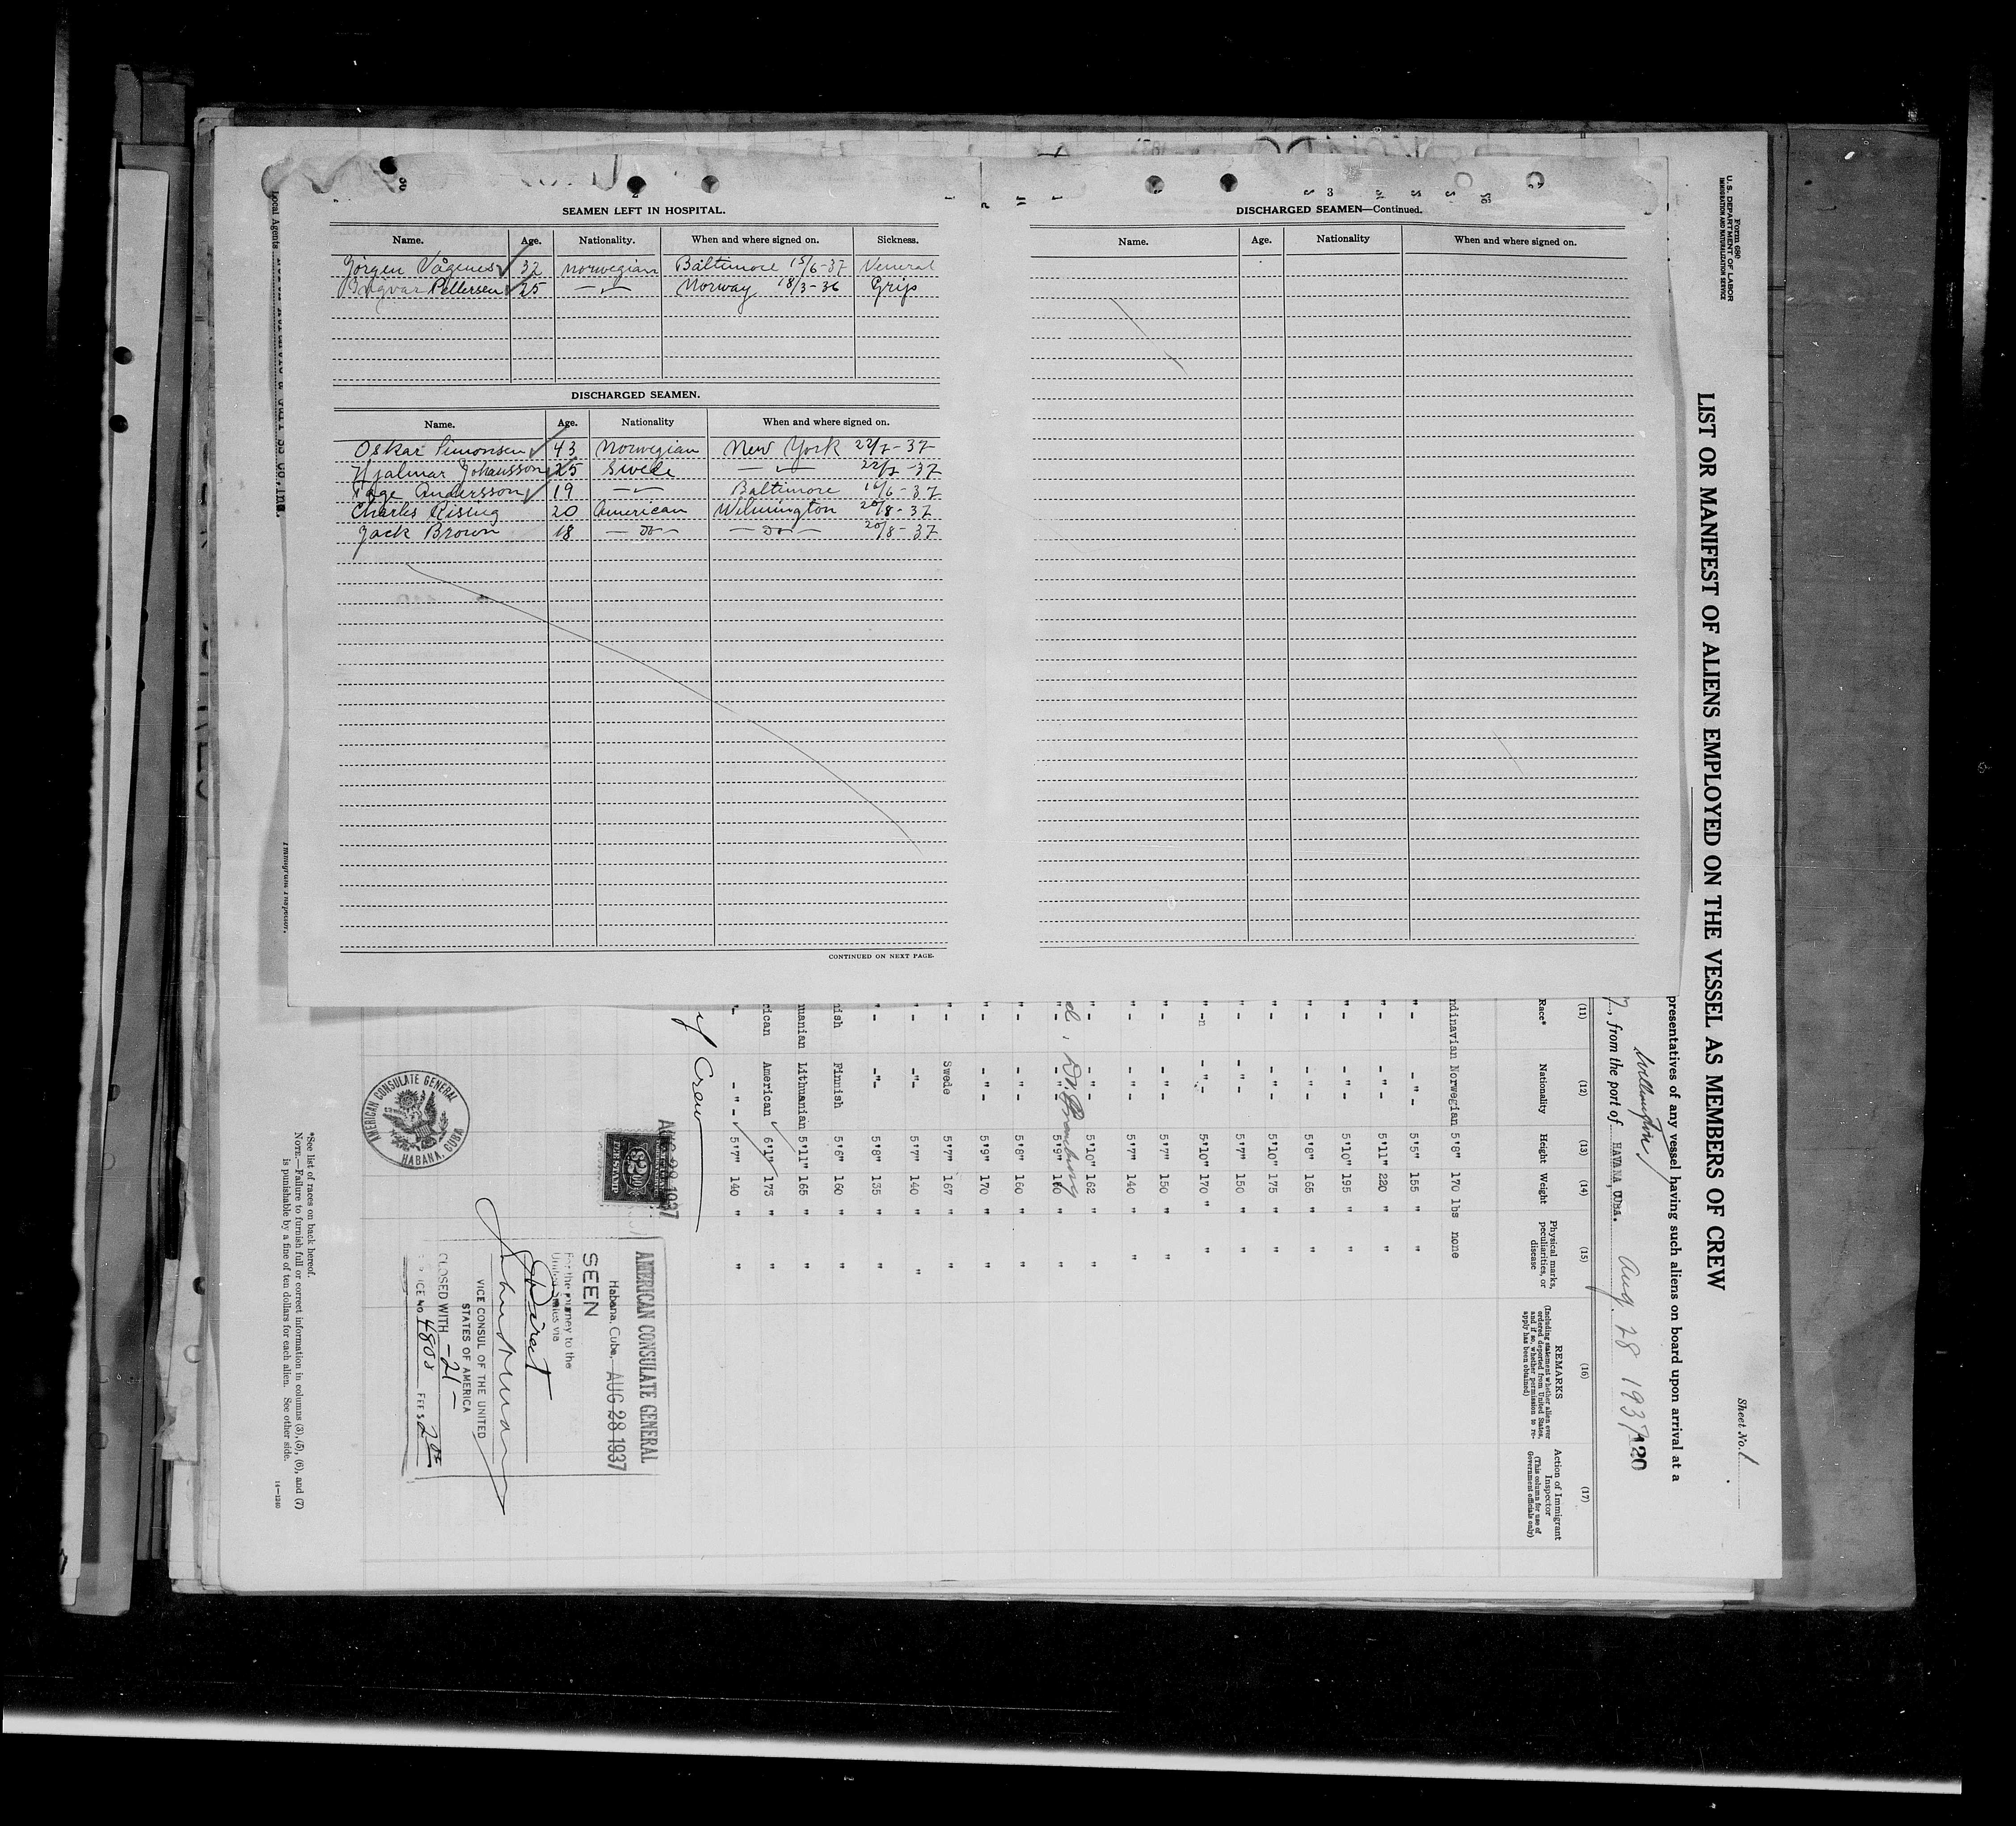 2
SEAMEN LEFT IN HOSPITAL.
Name. Age. Nationality. When and where signed on. Sickness.
Jörgen Vågenes 32 Norwegian Baltimore 15/6-37 Veneral
Ingvar Pettersen 25 -"- Norway 18/3-36 Grip
DISCHARGED SEAMEN.
Name. Age. Nationality When and where signed on.
Oskar Simonsen 43 Norwegian New York 22/7-37
Hjalmar Johansson 25 Swede -"- 22/7-37
Tage Andersson 19 -"- Baltimore 16/6-37
Charles Rising 20 American Wilmington 20/8-37
Jack Brown 18 -Do- -Do- 20/8-37
CONTINUED ON NEXT PAGE.
3
DISCHARGED SEAMEN—Continued.
Name. Age. Nationality When and where signed on.
Local Agents
Immigrant Inspector.
Form 680
U. S. DEPARTMENT OF LABOR
IMMIGRATION AND NATURALIZATION SERVICE
Sheet No. 1
LIST OR MANIFEST OF ALIENS EMPLOYED ON THE VESSEL AS MEMBERS OF CREW
presentatives of any vessel having such aliens on board upon arrival at a
Wilmington
7, from the port of HAVANA, CUBA. Aug. 28 1937 120
(11) (12) (13) (14) (15) (16) (17)
Race* Nationality Height Weight Physical marks, peculiarities, or disease
REMARKS
(Including statement whether alien ever ordered deported from United States, and if so, whether permission to reapply has been obtained)
Action of Immigrant Inspector
(This column for use of Government officials only)
ndinavian Norwegian 5'8" 170 lbs none
"- -"- 5'5" 155 " "
"- -"- 5'11" 220 " "
"- -"- 5'10" 195 " "
"- -"- 5'8" 165 " "
"- -"- 5'10" 175 " "
"- -"- 5'7" 150 " "
-n -"- 5'10" 170 " "
"- -"- 5'7" 150 " "
"- -"- 5'7" 140 " "
"- -"- 5'10" 162 " "
"- -"- 5'9" 160 " "
"- -"- 5'8" 160 " "
"- -"- 5'9" 170 " "
"- Swede 5'7" 167 " "
"- -"- 5'7" 140 " "
"- -"- 5'8" 135 " "
nish Finnish 5'6" 160 " "
uanian Lithuanian 5'11" 165 " "
rican American 6'1" 173 " "
"- -"- 5'7" 140 " "
of Crew
AUG 28 1937
$2.00
FEE STAMP
AMERICAN CONSULATE GENERAL
Habana, Cuba, AUG 28 1937
SEEN
For the journey to the
United States via
Direct
VICE CONSUL OF THE UNITED
STATES OF AMERICA
CLOSED WITH -21-
SERVICE NO. 4803 FEE $ 2.00
AMERICAN CONSULATE GENERAL
HABANA, CUBA
*See list of races on back hereof.
NOTE.—Failure to furnish full or correct information in columns (3), (5), (6), and (7)
is punishable by a fine of ten dollars for each alien. See other side.
14—1240